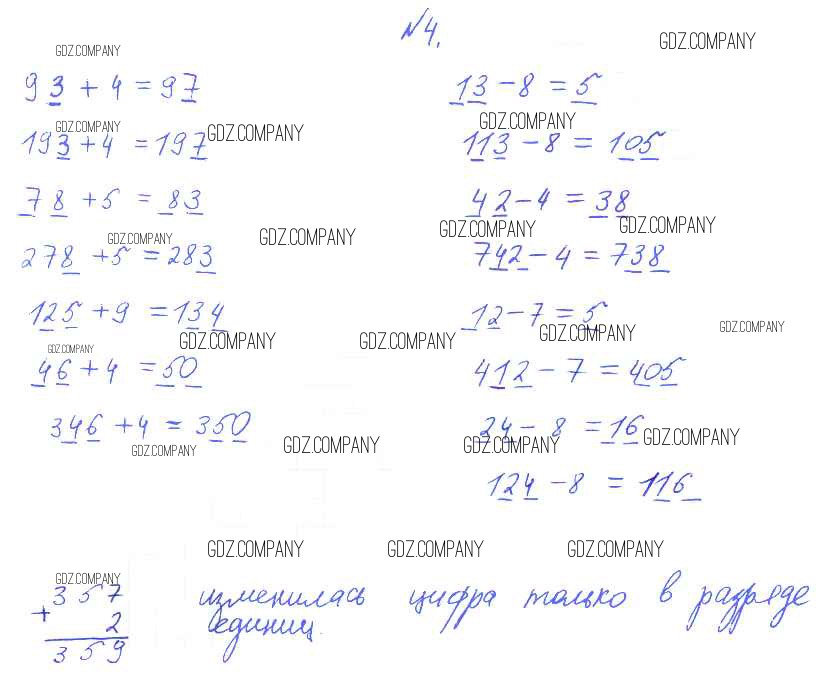 №4.
GDZ.COMPANY GDZ.COMPANY
93 + 4 = 97 13 - 8 = 5
GDZ.COMPANY GDZ.COMPANY GDZ.COMPANY
193 + 4 = 197 113 - 8 = 105
78 + 5 = 83 42 - 4 = 38
GDZ.COMPANY GDZ.COMPANY GDZ.COMPANY GDZ.COMPANY
278 + 5 = 283 742 - 4 = 738
125 + 9 = 134 12 - 7 = 5
GDZ.COMPANY GDZ.COMPANY GDZ.COMPANY GDZ.COMPANY GDZ.COMPANY
46 + 4 = 50 412 - 7 = 405
346 + 4 = 350 24 - 8 = 16
GDZ.COMPANY GDZ.COMPANY GDZ.COMPANY GDZ.COMPANY
124 - 8 = 116
GDZ.COMPANY GDZ.COMPANY GDZ.COMPANY
GDZ.COMPANY
357 изменилась цифра только в разряде
+ 2 единиц.
359